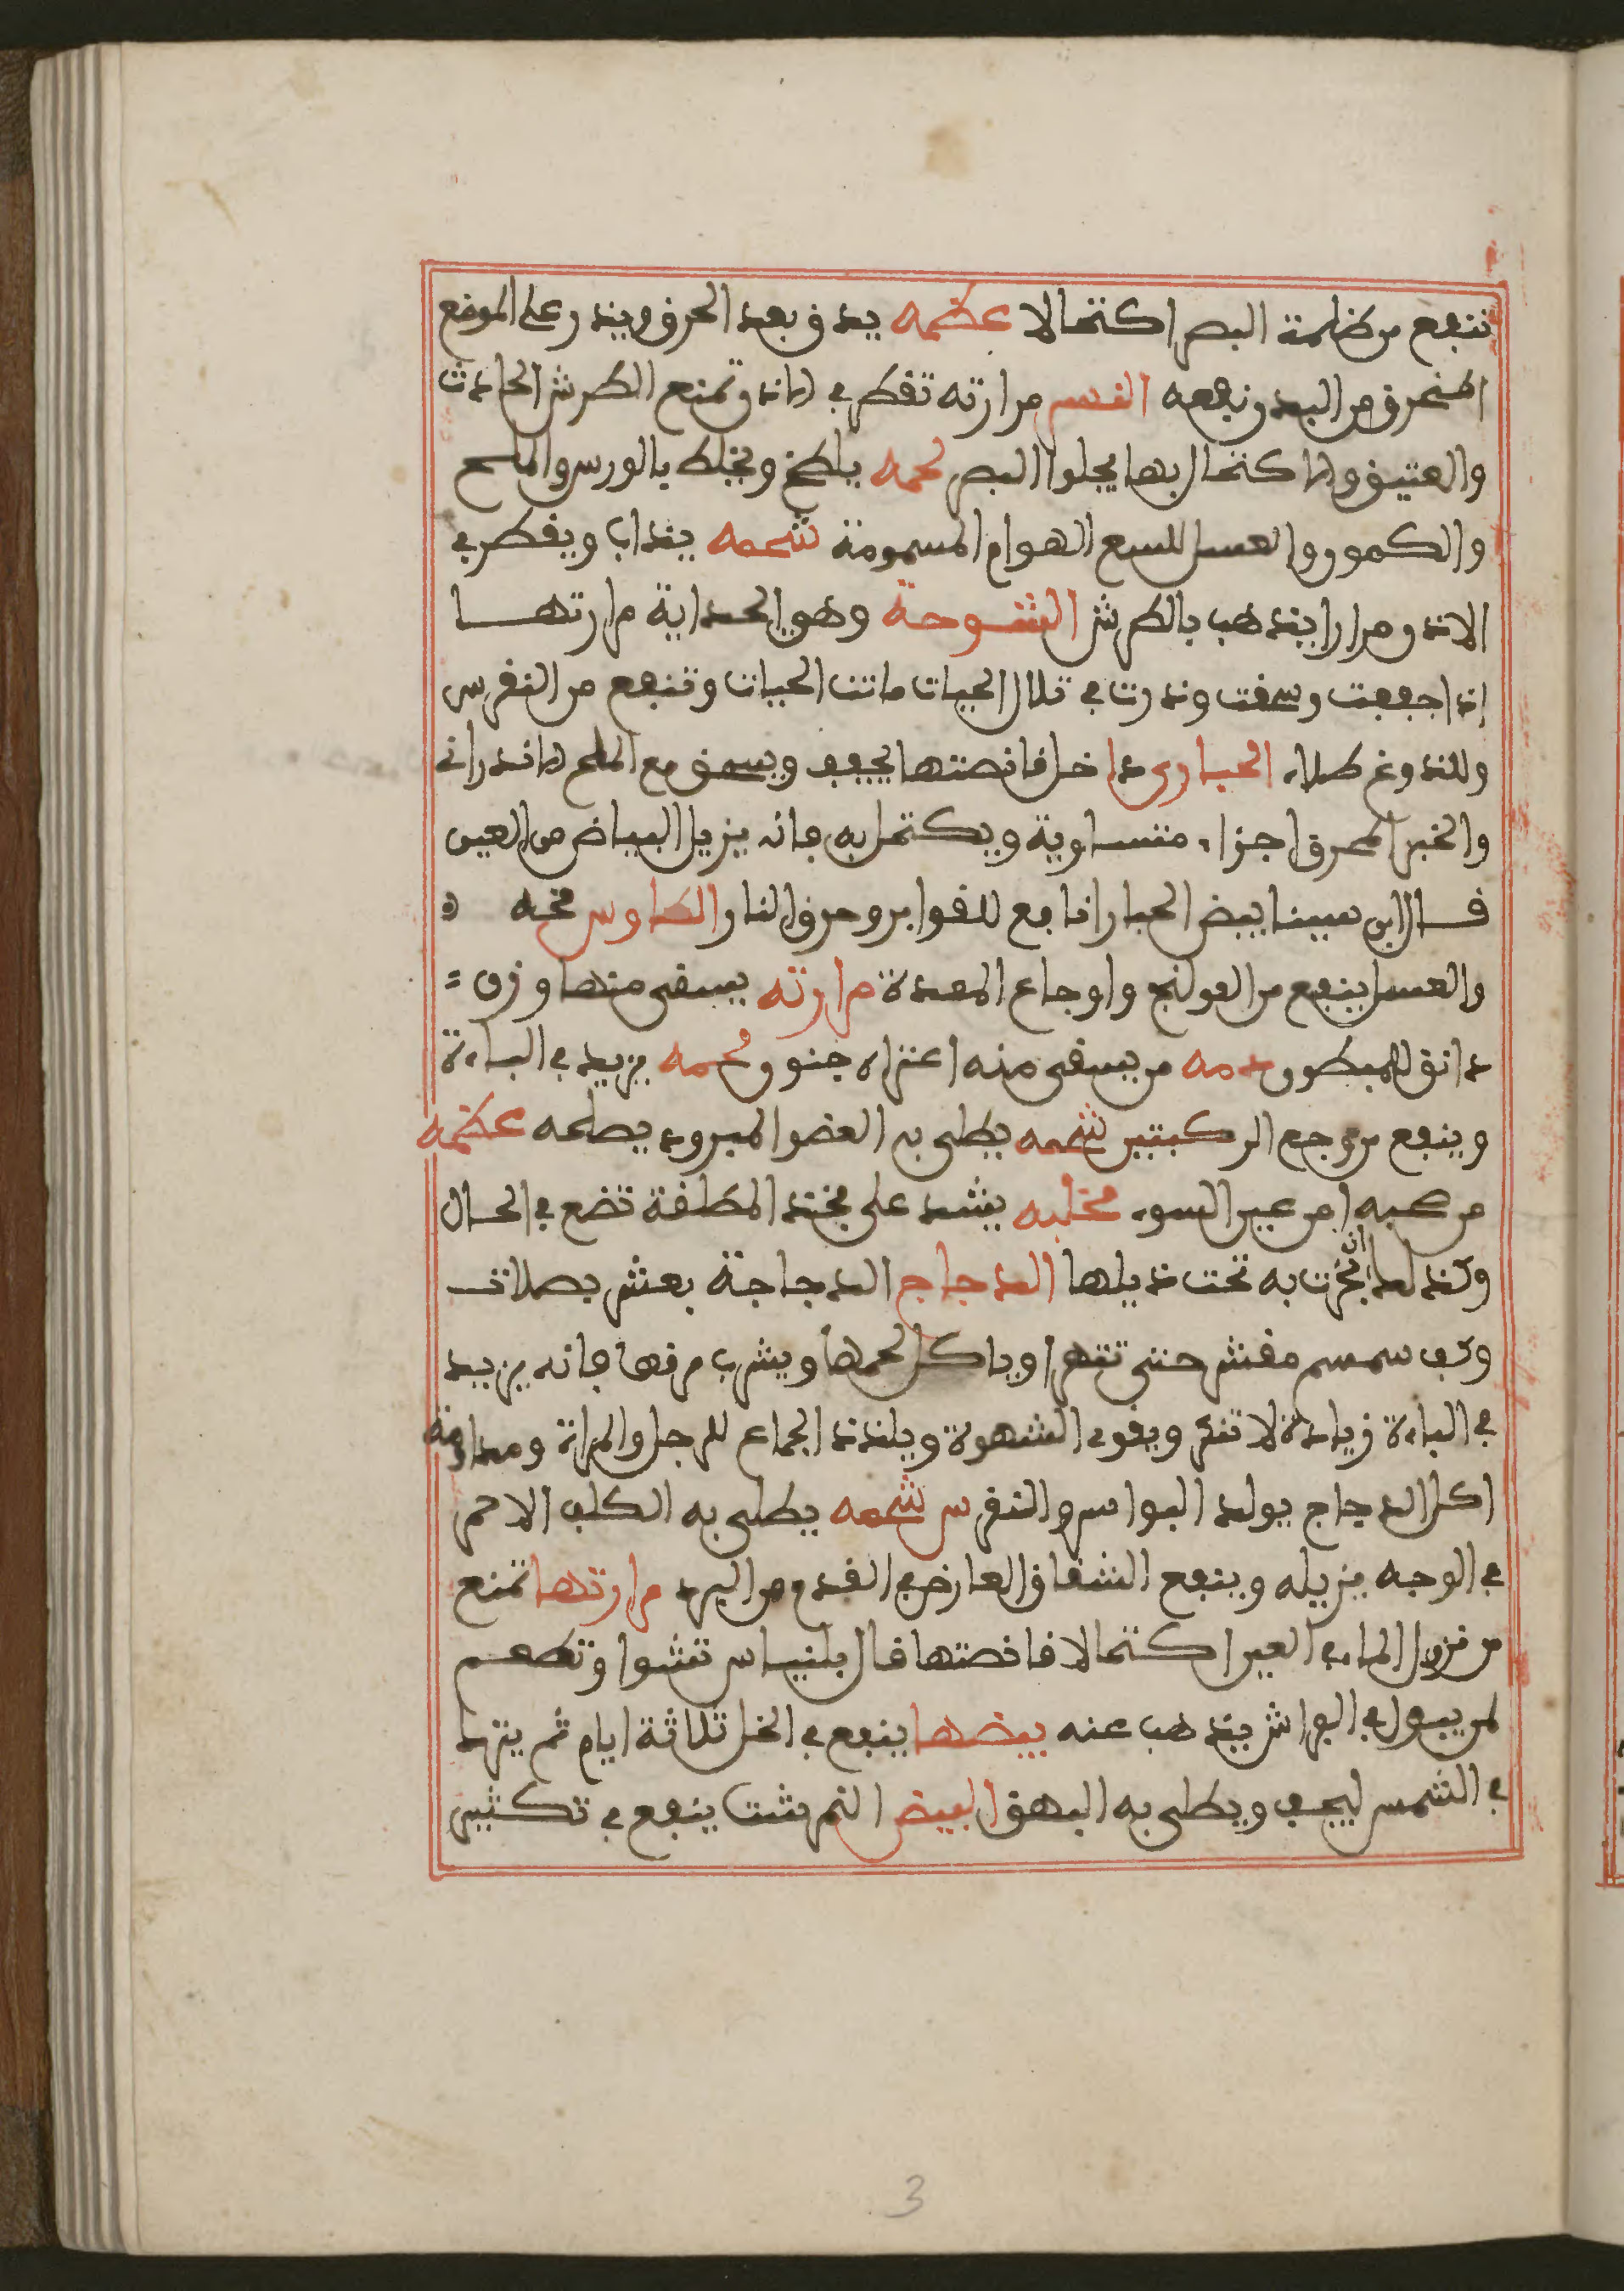 تنفع من ظلمة البصر اكتحالا عظمه يدق بعد الحرق ويذر على الموضع
المنحرق من البعد ونفعه النسر مرارته تقطر في الاذن وتمنع الطرش الحادث
والعتيق والاكتحال بها يجلوا البصر لحمه يلطخ ويخلط بالورس والملح
والكمون والعسل للسع الهوام المسمومة شحمه يذاب ويقطر في
الاذن مرارا يذهب بالطرش الشوحة وهو الحداية مرارتها
إذا جففت وسحقت وذرت في تلال الحيات ماتت الحيات وتنفع من النقرس
وللذوغ طلاء الحبارى داخل قانصتها يجفف ويسحق مع الملح الاندراني
والخبز المحرق اجزاء متساوية ويكتحل به فانه يزيل البياض من العين
قال ابن سينا بيض الحبارا نافع للقوابي وحرق النار الطاوس مخه
والعسل ينفع من القولنج واوجاع المعدة مرارته يسقى منها وزن
دانق للمبطون دمه من يسقى منه اعتراه جنون لحمه يزيد في الباءة
وينفع من وجع الركبتين شحمه يطلى به العضو المبرود يصلحه عظمه
من صحبه امن عين السوء مخلبه يشد على فخذ المطلقة تضع في الحال
وكذلك ان بخرت به تحت ذيلها الدجاج الدجاجة بعشر بصلات
وكف سمسم مقشر حتى تتهرا وياكل لحمها ويشرب مرقها فانه يزيد
في الباءة زيادة لا تنكر ويقوي الشهوة ويلذذ الجماع للرجل والمراة ومداومة
اكل الدجاج يولد البواسر والنقرس شحمه يطلى به الكلف الاحمر
في الوجه يزيله وينفع الشقاق العارض في القدم من البرد مرارتها تمنع
من نزول الماء في العين اكتحالا قانصتها قال بلنياس تشوا وتطعم
لمن يبول في الفراش يذهب عنه بيضها ينقع في الخل ثلاثة ايام ثم يترك
في الشمس ليجف ويطلى به البهق البيض النمرشت ينفع في تكثير
3